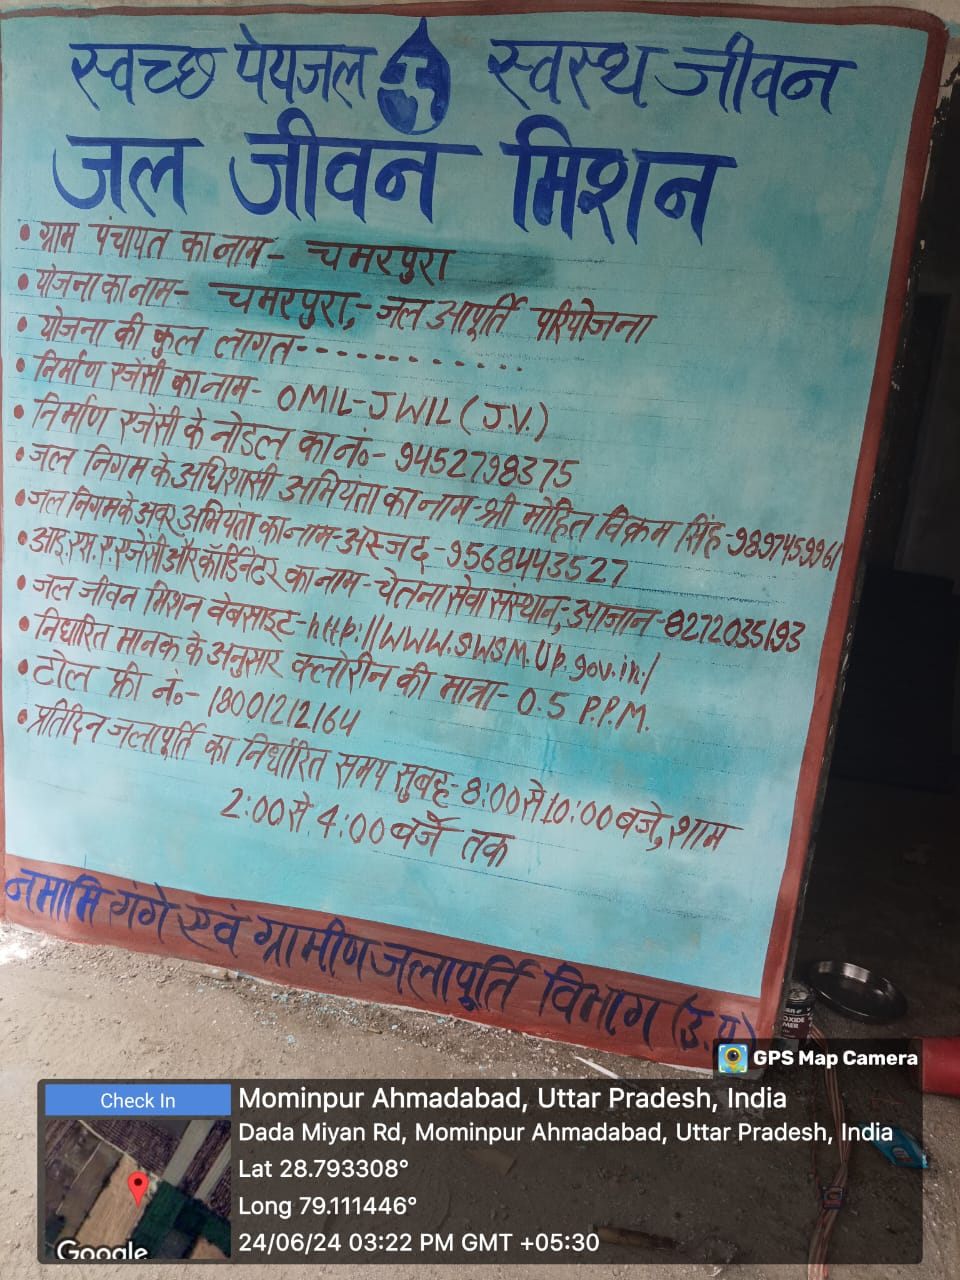 स्वच्छ पेयजल स्वस्थ जीवन
जल जीवन मिशन
• ग्राम पंचायत का नाम - चमरपुरा
• योजना का नाम - चमरपुरा,- जल आपूर्ति परियोजना
• योजना की कुल लागत-..............
• निर्माण एजेंसी का नाम - OMIL-JWIL (J.V.)
• निर्माण एजेंसी के नोडल का नं०- 9452798375
• जल निगम के अधिशासी अभियंता का नाम-श्री मोहित विक्रम सिंह-9897459961
• जल निगम के अवर अभियंता का नाम-अस्जद-9568443527
• आइ.एस.ए.एजेंसी और कॉर्डिनेटर का नाम-चेतना सेवा संस्थान,-आजान-8272035193
• जल जीवन मिशन वेबसाइट-http://www.swsm.up.gov.in:/
• निर्धारित मानक के अनुसार क्लोरीन की मात्रा- 0.5 P.P.M.
• टोल फ्री नं०- 18001212164
• प्रतिदिन जलापूर्ति का निर्धारित समय सुबह-8:00 से 10:00 बजे, शाम
2:00 से 4:00 बजे तक
नमामि गंगे एवं ग्रामीण जलापूर्ति विभाग (उ.प्र)
GPS Map Camera
Check In
Mominpur Ahmadabad, Uttar Pradesh, India
Dada Miyan Rd, Mominpur Ahmadabad, Uttar Pradesh, India
Lat 28.793308°
Long 79.111446°
24/06/24 03:22 PM GMT +05:30
Google